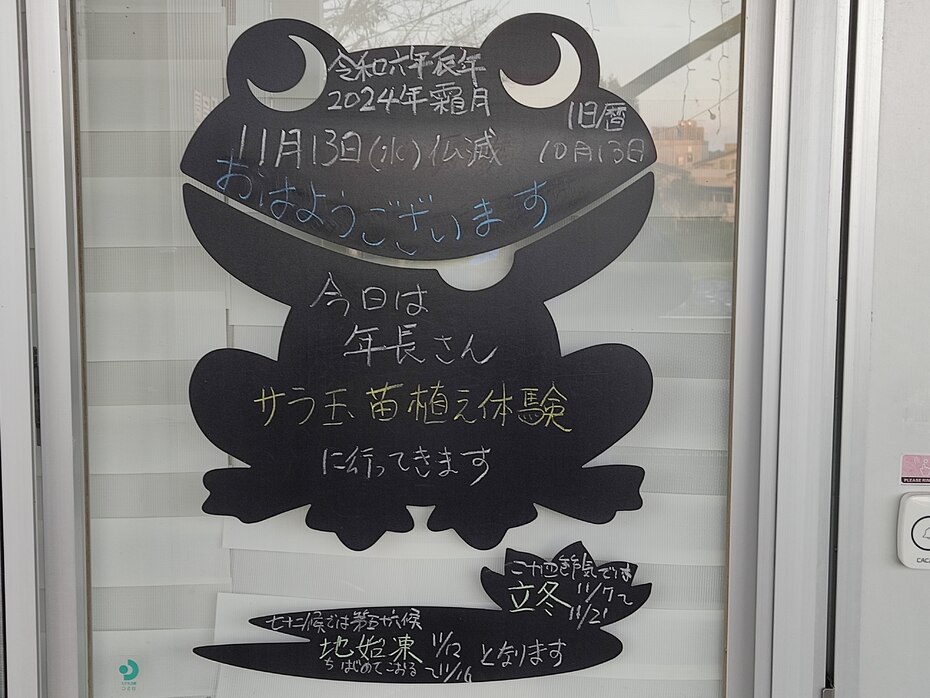 令和六年辰年
2024年霜月
旧暦
11月13日(水)仏滅
10月13日
おはようございます
今日は
年長さん
サラ玉苗植え体験
に行ってきます
二十四節気では
立冬 11/7〜
11/21
七十二候では第五十六候
地始凍 11/12
ち はじめて こおる 〜11/16
となります
PLEASE RING